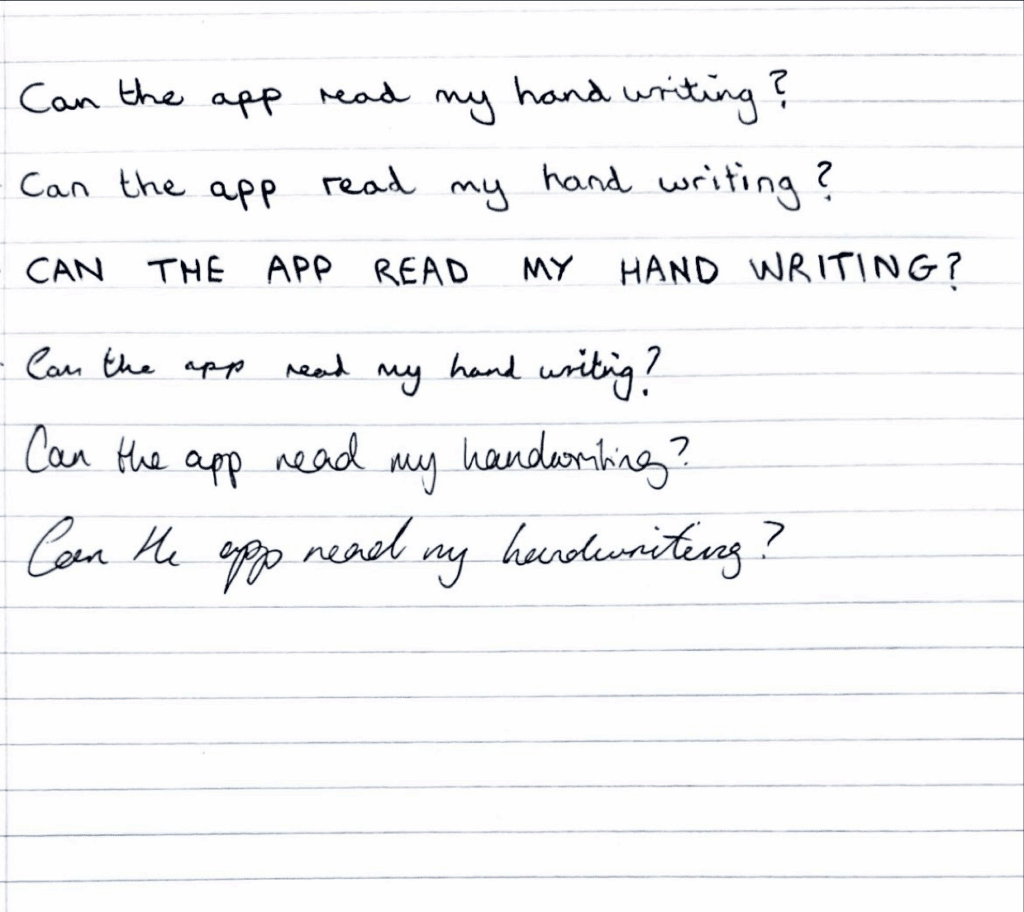 Can the app read my hand writing?
Can the app read my hand writing?
CAN THE APP READ MY HAND WRITING?
Can the app read my hand writing?
Can the app read my handwriting?
Can the app read my handwriting?